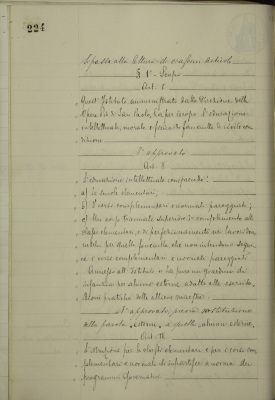 224
Si passa alla lettura di ciascun articolo
§ 1° - Scopo
Art. I
Quest'Istituto amministrato dalla Direzione delle
Opere Pie di San Paolo, ha per iscopo l'educazione
intellettuale, morale e fisica di fanciulle di civile con
dizione.
È approvato
Art. II
L'educazione intellettuale comprende:
a) le scuole elementari;
b) I corsi complementari e normali pareggiati;
c) Un corso superiore di complemento alle
classi elementari e di perfezionamento nei lavori don
neschi per quelle fanciulle che non intendono segui
re i corsi complementari e normali pareggiati.
Annesso all'Istituto vi ha pure un giardino di
infanzia per alunne esterne adatto alle esercita
zioni pratiche delle allieve maestre.
È approvato, salvo sostituzione
alla parola esterne, a quella alunne esterne.
Art. III
L'istruzione per le classi elementari e per i corsi com
plementari e normali è impartita a norma dei
programmi governativi